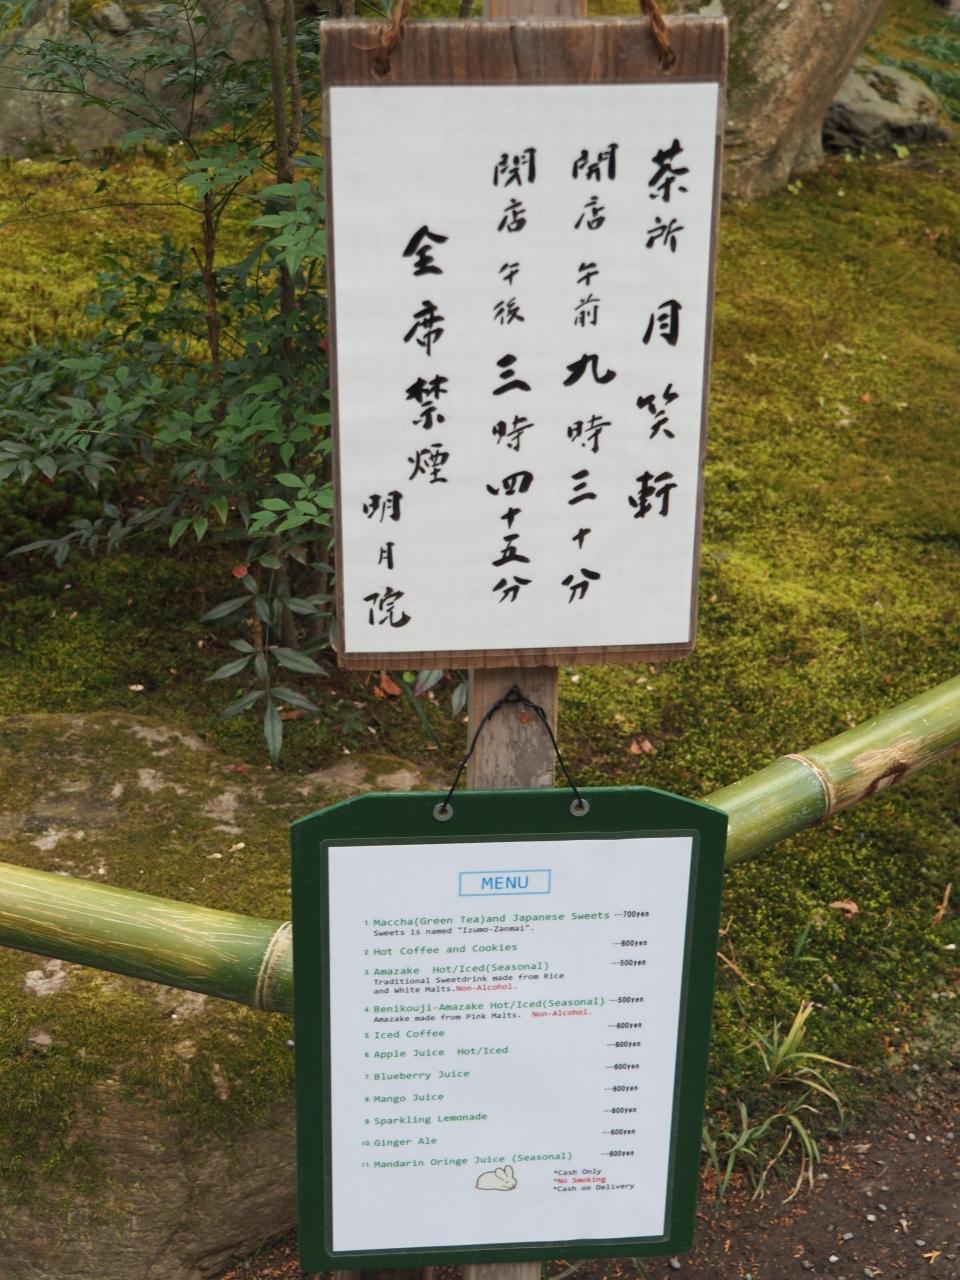 茶所 月笑軒
開店 午前 九時三十分
閉店 午後 三時四十五分
全席禁煙
明月院
MENU
1. Maccha(Green Tea)and Japanese Sweets ···700yen
Sweets is named "Izumo-Zanmai".
2. Hot Coffee and Cookies ···600yen
3. Amazake Hot/Iced(Seasonal) ···500yen
Traditional Sweetdrink made from Rice
and White Malts.Non-Alcohol.
4. Benikouji-Amazake Hot/Iced(Seasonal) ···500yen
Amazake made from Pink Malts. Non-Alcohol.
5. Iced Coffee ···600yen
6. Apple Juice Hot/Iced ···600yen
7. Blueberry Juice ···600yen
8. Mango Juice ···600yen
9. Sparkling Lemonade ···600yen
10. Ginger Ale ···600yen
11. Mandarin Oringe Juice (Seasonal) ···600yen
*Cash Only
*No Smoking
*Cash on Delivery